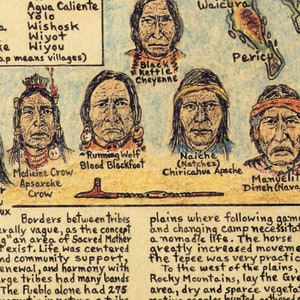 Agua Caliente
Yolo
Wishosk
Wiyot
Wiyou
ap means villages)
Waicura
Pericu
Black
Kettle
Cheyenne
Medicine Crow
Apsaroke
Crow
Running Wolf
Blood Blackfoot
Naiche
(Natchez)
Chiricahua Apache
Manuelit
Dineh (Nava
ux
Borders between tribes
erally vague, as the concept
g" an area of Sacred Mother
exist. Life was centered
and community support,
enewal, and harmony with
arge tribes had many bands
The Pueblo alone had 275
plains where following game
and changing camp necessitat
a nomadic life. The horse
greatly increased movement
the tepee was very practic
To the west of the plains,
Rocky Mountains, lay the Gr
area, dry and sparse vegeta